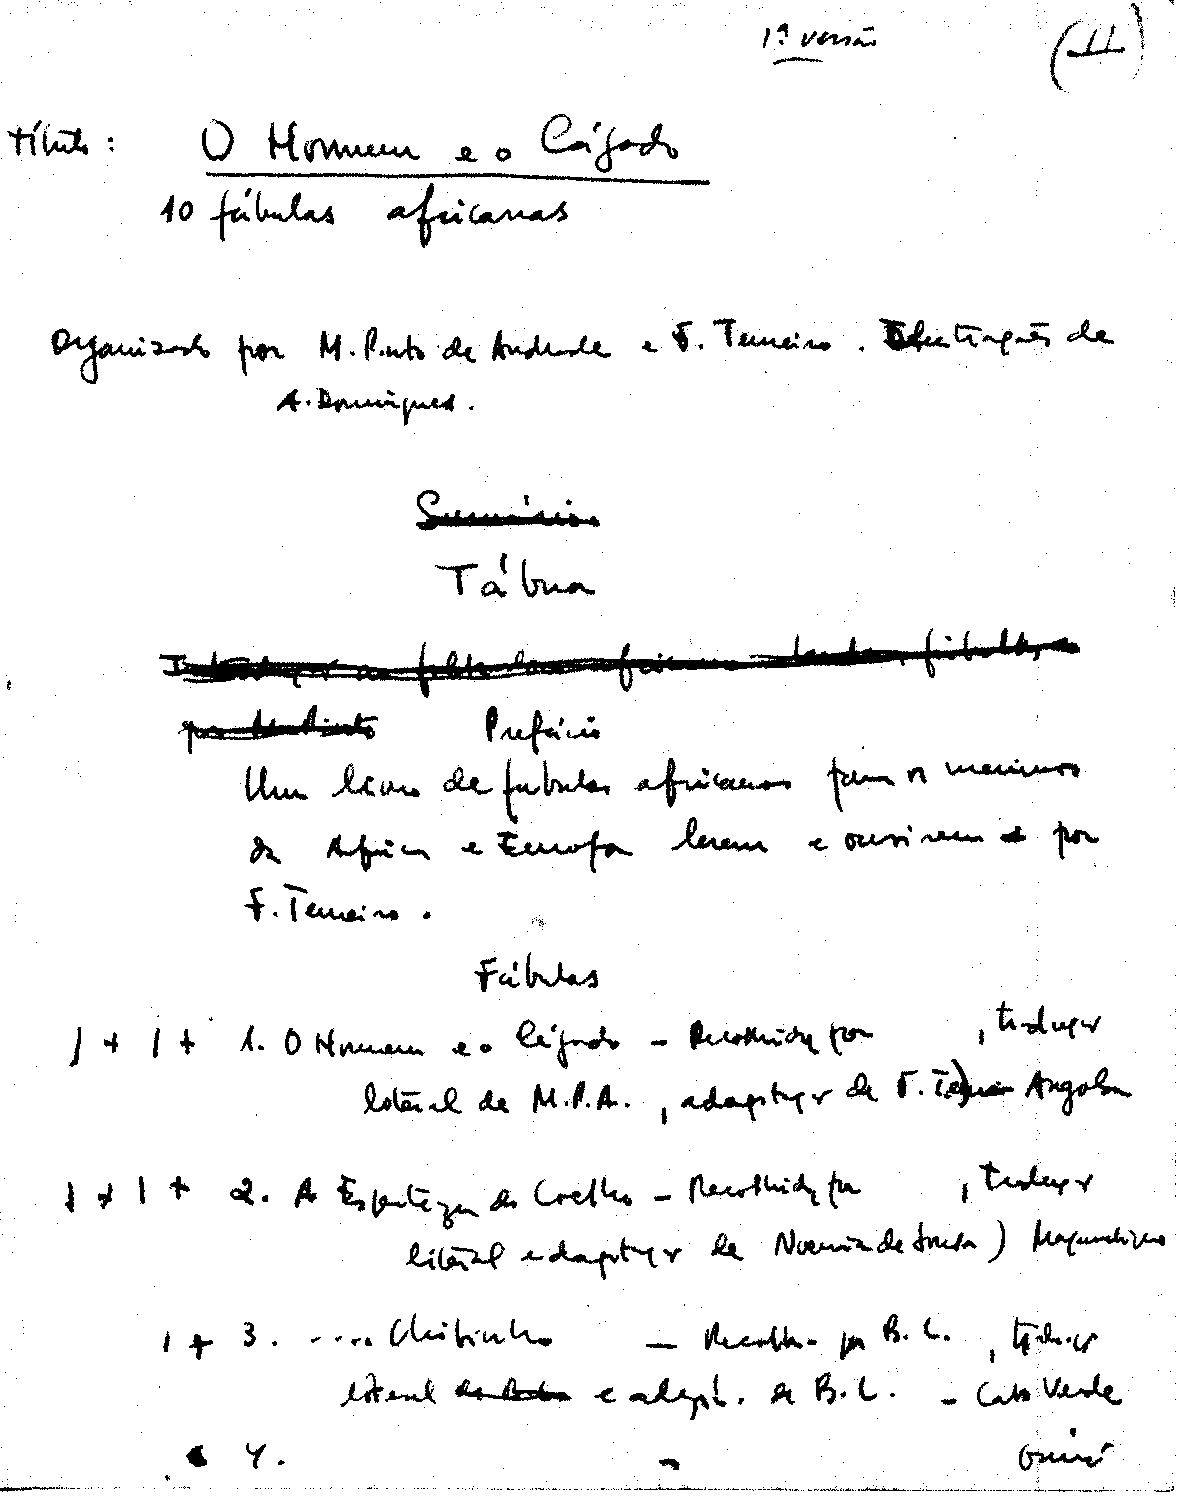 1ª versão (11)
título: O Homem e o Cágado
10 fábulas africanas
Organizado por M. Pinto de Andrade e F. Tenreiro. Ilustrações de
A. Domingues.
Sumário
Tábua
Introdução ao folclore africano
por M. Pinto Prefácio
Um livro de fábulas africanas para os meninos
da África e Europa lerem e ouvirem por
F. Tenreiro.
Fábulas
1 + 1 + 1. O Homem e o Cágado – Recolhida por , tradução
literal de M.P.A., adaptação de F. Angola
1 + 1 + 2. A Esperteza do Coelho – Recolhida por , tradução
literal e adaptação de Noémia de Sousa) Moçambique
1 + 3. .... Chibinho – Recolha por B. L., tradução
literal e adapt. de B. L. – Cabo Verde
4. – Guiné